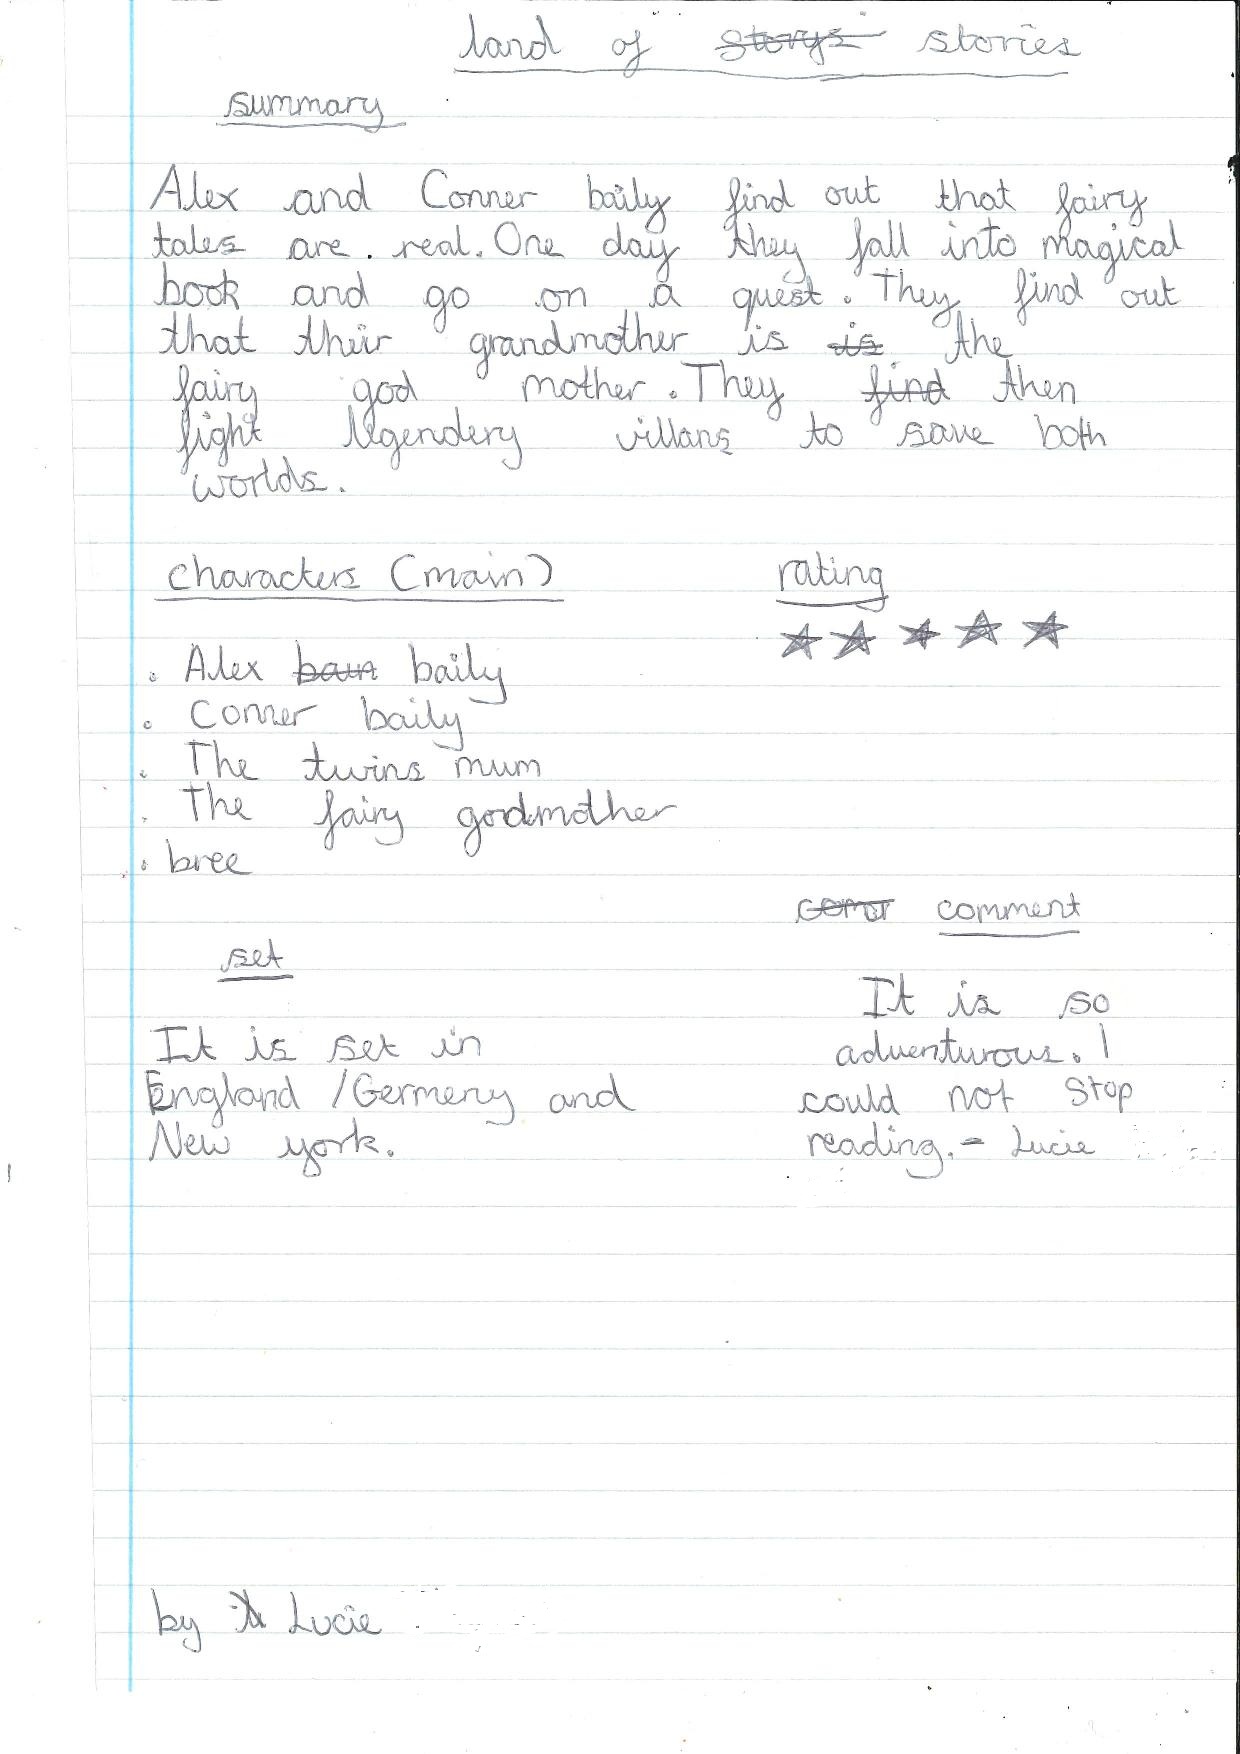 land of storys stories
summary
Alex and Conner baily find out that fairy
tales are . real. One day they fall into magical
book and go on a quest. They find out
that their grandmother is is the
fairy god mother. They find then
fight legendery villans to save both
worlds.
characters (main)
. Alex baily
. Conner baily
. The twins mum
. The fairy godmother
. bree
rating
★ ★ ★ ★ ★
set
It is set in
England / Germeny and
New york.
comment
It is so
adventurous. I
could not stop
reading. - Lucie
by Lucie